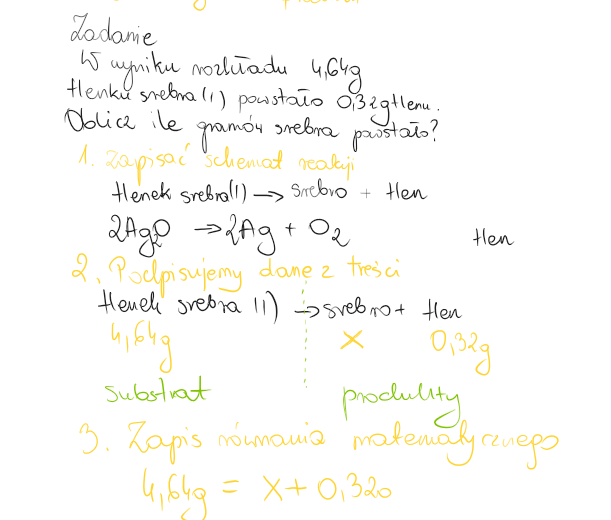 Zadanie
W wyniku rozkładu 4,64g
tlenku srebra(I) powstało 0,32g tlenu.
Oblicz ile gramów srebra powstało?
1. Zapisać schemat reakcji
tlenek srebra(I) → srebro + tlen
2Ag2O → 2Ag + O2
tlen
2. Podpisujemy dane z treści
tlenek srebra (I) → srebro + tlen
4,64g x 0,32g
substrat produkty
3. Zapis równania matematycznego
4,64g = x + 0,320